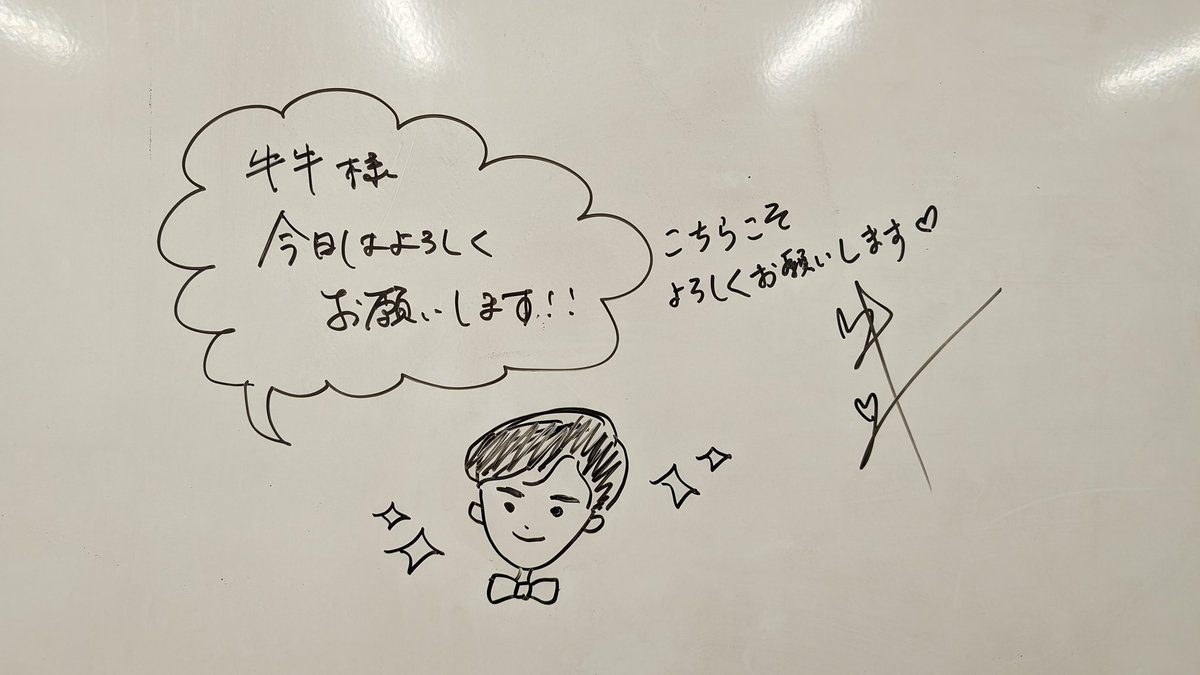 牛牛様
今日はよろしく
お願いします!!
こちらこそ
よろしくお願いします♡